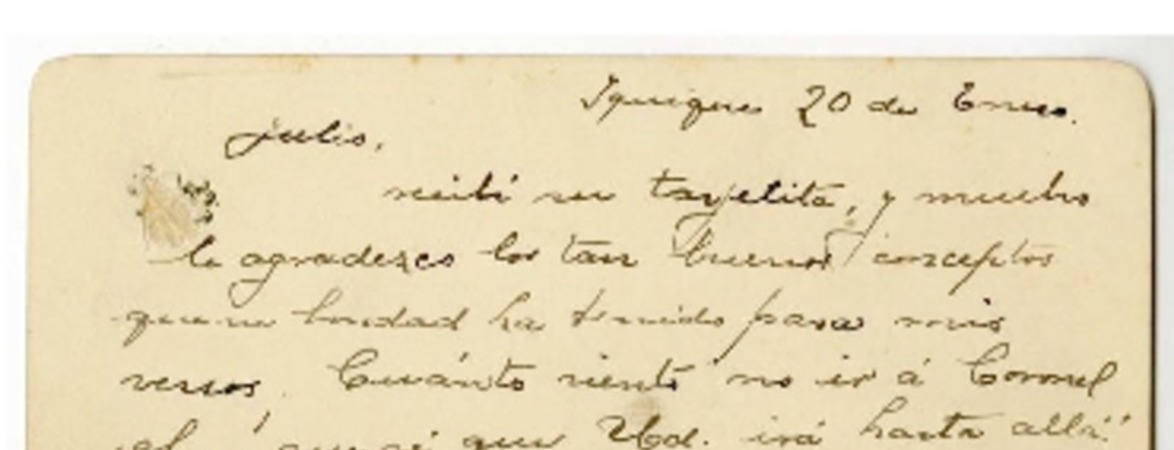 Iquique 20 de Enero.
Julio,
recibí su tarjetita, y mucho
le agradezco los tan buenos conceptos
que su bondad ha tenido para mis
versos. Cuánto siento no ir á Coronel
que Ud. irá hasta allá!